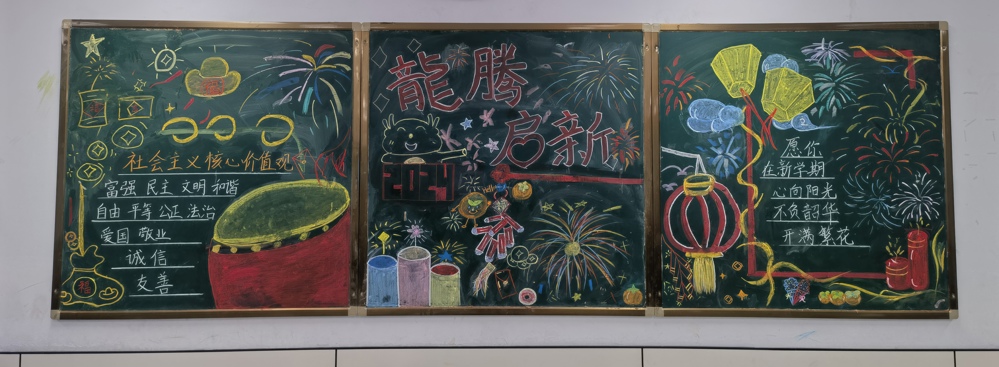 社会主义核心价值观
富强 民主 文明 和谐
自由 平等 公正 法治
爱国 敬业
诚信
友善
福
龍腾
启新
2024
愿你
在新学期
心向阳光
不负韶华
开满繁花